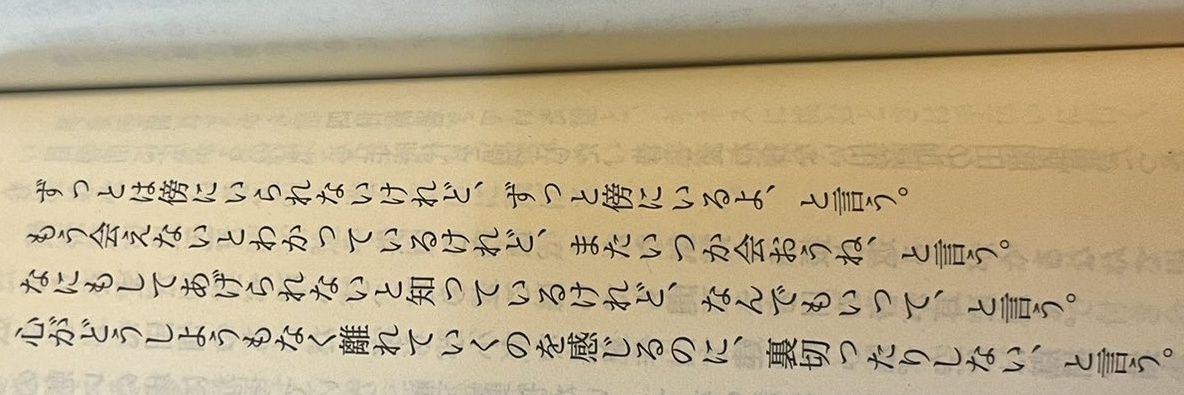 ずっとは傍にいられないけれど、ずっと傍にいるよ、と言う。
もう会えないとわかっているけれど、またいつか会おうね、と言う。
なにもしてあげられないと知っているけれど、なんでもいって、と言う。
心がどうしようもなく離れていくのを感じるのに、裏切ったりしない、と言う。